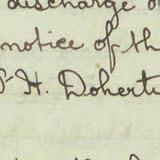 discharge o
notice of th
H. Doherty